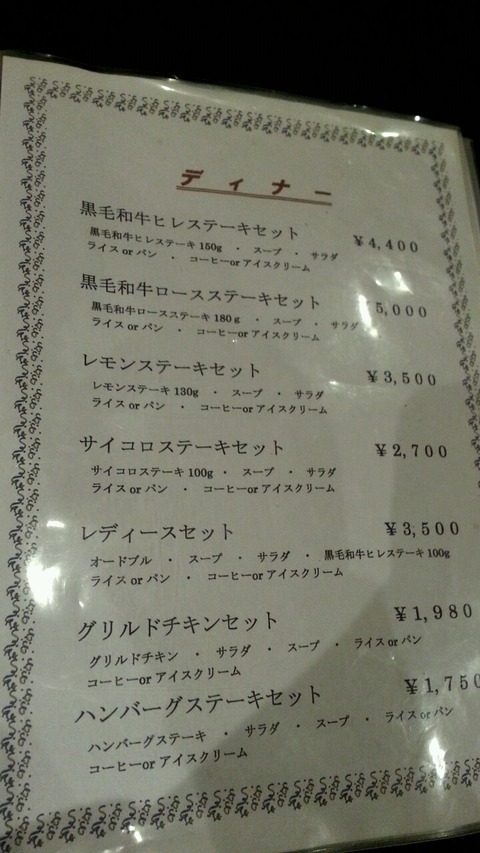 ディナー
黒毛和牛ヒレステーキセット ¥4,400
黒毛和牛ヒレステーキ150g ・ スープ ・ サラダ
ライス or パン ・ コーヒーor アイスクリーム
黒毛和牛ロースステーキセット ¥5,000
黒毛和牛ロースステーキ180g ・ スープ ・ サラダ
ライス or パン ・ コーヒーor アイスクリーム
レモンステーキセット ¥3,500
レモンステーキ130g ・ スープ ・ サラダ
ライス or パン ・ コーヒーor アイスクリーム
サイコロステーキセット ¥2,700
サイコロステーキ100g ・ スープ ・ サラダ
ライス or パン ・ コーヒーor アイスクリーム
レディースセット ¥3,500
オードブル ・ スープ ・ サラダ ・ 黒毛和牛ヒレステーキ100g
ライス or パン ・ コーヒーor アイスクリーム
グリルドチキンセット ¥1,980
グリルドチキン ・ サラダ ・ スープ ・ ライス or パン
コーヒーor アイスクリーム
ハンバーグステーキセット ¥1,750
ハンバーグステーキ ・ サラダ ・ スープ ・ ライス or パン
コーヒーor アイスクリーム